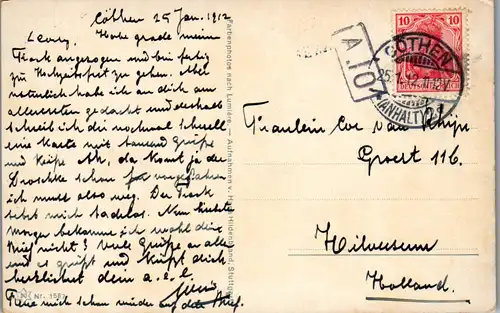 Cöthen 25 Jan. 1912
Habe grade meinen
Frack angezogen und bin fertig
zu gehen. Aber
natürlich habe ich an dich am
allerersten gedacht und deshalb
schreib ich dir nochmal schnell
eine Karte mit tausend Grüße
und Küsse. Ah, da kommt ja die
Droschke schon vorgefahren
ich muss also weg. Der Frack
sitzt mich tadellos.
Morgen bekomme ich wohl dein
Brief nicht? Viele Grüße an alle
und es grüßt und küßt dich
herzlichst dein
Freue mich schon wieder auf den Brief.
Nr. 1587
Farbenphotos nach Lumière. — Aufnahmen v. Hans Hildenbrand, Stuttgart
A.10
10 10
DEUTSCHES REICH
CÖTHEN
25.1.12
(ANHALT)
Fräulein Cor van
Groest 116.
Hilversum
Holland.